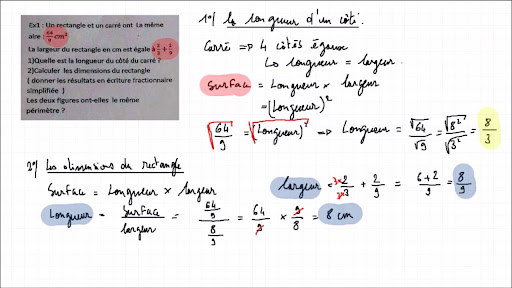 Ex1 : Un rectangle et un carré ont La même
aire : 64/9 cm²
La largeur du rectangle en cm est égale à 2/3 + 2/9
1)Quelle est la longueur du côté du carré ?
2)Calculer les dimensions du rectangle
( donner les résultats en écriture fractionnaire
simplifiée )
Les deux figures ont-elles le même
périmètre ?
1°) La longueur d'un côté.
Carré => 4 côtés égaux
↳ longueur = largeur.
Surface = Longueur x largeur
= (Longueur)²
√64/9 = √(Longueur)² => Longueur = √64/√9 = √8²/√3² = 8/3
2°) Les dimensions du rectangle
Surface = Longueur x largeur
largeur = 3x2/3x3 + 2/9 = 6+2/9 = 8/9
Longueur = Surface/largeur = 64/9 / 8/9 = 64/9 x 9/8 = 8 cm